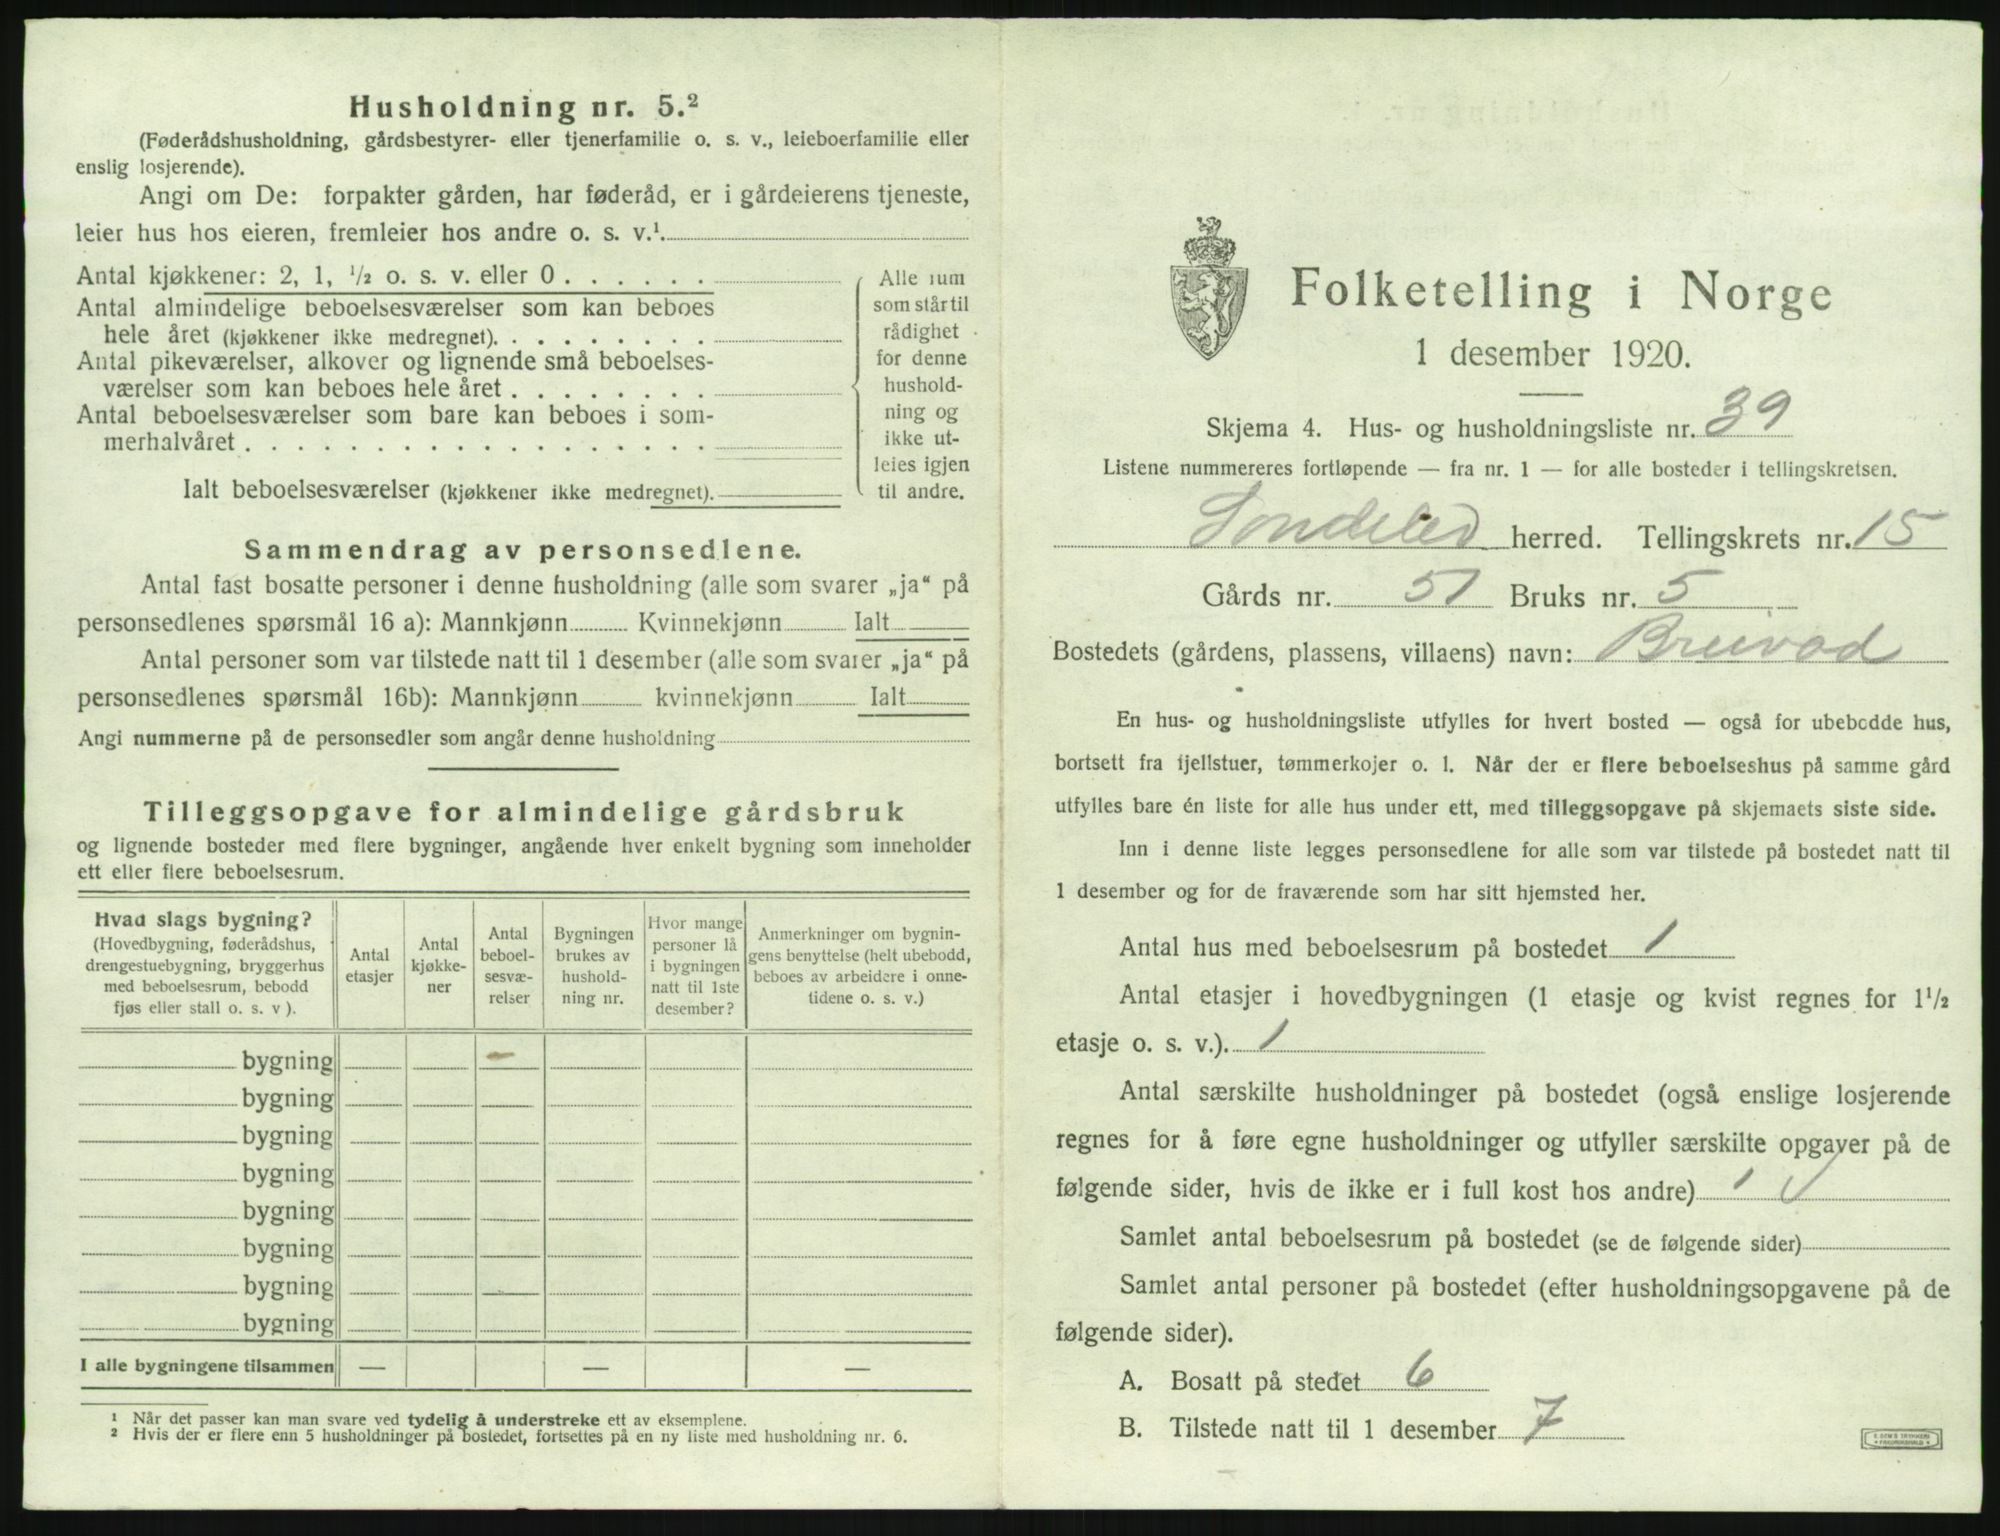 Husholdning nr. 5.²
(Føderådshusholdning, gårdsbestyrer- eller tjenerfamilie o. s. v., leieboerfamilie eller
enslig losjerende).
Angi om De: forpakter gården, har føderåd, er i gårdeierens tjeneste,
leier hus hos eieren, fremleier hos andre o. s. v.¹
Antal kjøkkener: 2, 1, ½ o. s. v. eller 0
Antal almindelige beboelsesværelser som kan beboes
hele året (kjøkkener ikke medregnet).
Antal pikeværelser, alkover og lignende små beboelses-
værelser som kan beboes hele året
Antal beboelsesværelser som bare kan beboes i som-
merhalvåret
Ialt beboelsesværelser (kjøkkener ikke medregnet).
Alle rum
som står til
rådighet
for denne
hushold-
ning og
ikke ut-
leies igjen
til andre.
Sammendrag av personsedlene.
Antal fast bosatte personer i denne husholdning (alle som svarer „ja“ på
personsedlenes spørsmål 16 a): Mannkjønn Kvinnekjønn Ialt
Antal personer som var tilstede natt til 1 desember (alle som svarer „ja“ på
personsedlenes spørsmål 16b): Mannkjønn kvinnekjønn Ialt
Angi nummerne på de personsedler som angår denne husholdning
Tilleggsopgave for almindelige gårdsbruk
og lignende bosteder med flere bygninger, angående hver enkelt bygning som inneholder
ett eller flere beboelsesrum.
Hvad slags bygning?
(Hovedbygning, føderådshus,
drengestuebygning, bryggerhus
med beboelsesrum, bebodd
fjøs eller stall o. s. v ).
Antal
etasjer
Antal
kjøkke-
ner
Antal
beboel-
sesvæ-
relser
Bygningen
brukes av
hushold-
ning nr.
Hvor mange
personer lå
i bygningen
natt til 1ste
desember?
Anmerkninger om bygnin-
gens benyttelse (helt ubebodd,
beboes av arbeidere i onne-
tidene o. s. v.)
bygning
bygning
bygning
bygning
bygning
bygning
bygning
bygning
I alle bygningene tilsammen — — —
¹ Når det passer kan man svare ved tydelig å understreke ett av eksemplene.
² Hvis der er flere enn 5 husholdninger på bostedet, fortsettes på en ny liste med husholdning nr. 6.
Folketelling i Norge
1 desember 1920.
Skjema 4. Hus- og husholdningsliste nr. 39
Listene nummereres fortløpende — fra nr. 1 — for alle bosteder i tellingskretsen.
Søndeled herred. Tellingskrets nr. 15
Gårds nr. 51 Bruks nr. 5
Bostedets (gårdens, plassens, villaens) navn: Breivad
En hus- og husholdningsliste utfylles for hvert bosted — også for ubebodde hus,
bortsett fra fjellstuer, tømmerkojer o. l. Når der er flere beboelseshus på samme gård
utfylles bare én liste for alle hus under ett, med tilleggsopgave på skjemaets siste side.
Inn i denne liste legges personsedlene for alle som var tilstede på bostedet natt til
1 desember og for de fraværende som har sitt hjemsted her.
Antal hus med beboelsesrum på bostedet 1
Antal etasjer i hovedbygningen (1 etasje og kvist regnes for 1½
etasje o. s. v.). 1
Antal særskilte husholdninger på bostedet (også enslige losjerende
regnes for å føre egne husholdninger og utfyller særskilte opgaver på de
følgende sider, hvis de ikke er i full kost hos andre) 1 √
Samlet antal beboelsesrum på bostedet (se de følgende sider)
Samlet antal personer på bostedet (efter husholdningsopgavene på de
følgende sider).
A. Bosatt på stedet 6
B. Tilstede natt til 1 desember 7